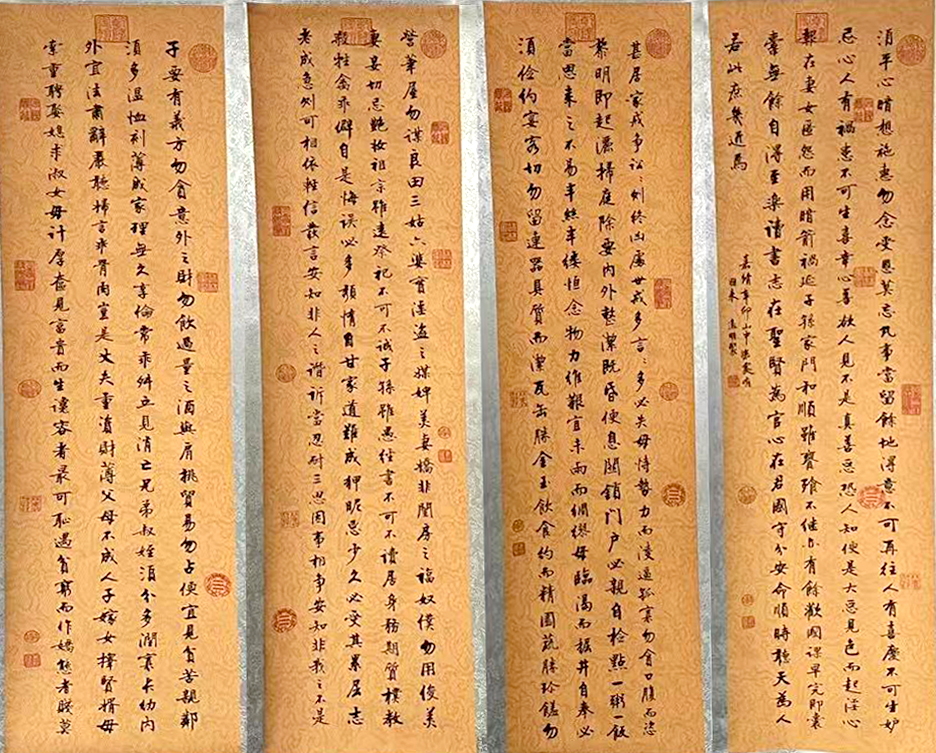 須平心暗想施惠勿念受恩莫忘凡事當留餘地得意不可再往人有喜慶不可生妒
忌心人有禍患不可生喜幸心善欲人見不是真善惡恐人知便是大惡見色而起淫心
報在妻女匿怨而用暗箭禍延子孫家門和順雖饔飧不继亦有餘歡國課早完即囊
橐無餘自得至樂讀書志在聖賢為官心在君國守分安命順時聽天為人
若此庶幾近焉
嘉靖辛卯山中
甚居家戒争訟:則終凶處世戒多言:多必失毋恃勢力而凌逼孤寡勿貪口腹而恣
黎明即起灑掃庭除要内外整潔既昏便息關鎖门户必親自檢點一粥一飯
當思来之不易半絲半縷恒念物力維艱宜未雨而綢繆毋臨渴而掘井自奉必
須儉約宴客切勿留連器具質而潔瓦缶勝金玉飲食約而精園蔬勝珍饈勿
營華屋勿謀良田三姑六婆實淫盗之媒婢美妾嬌非閨房之福奴僕勿用俊美
妻妾切忌艷妝祖宗雖遠祭祀不可不誠子孫雖愚經書不可不讀居身務期質樸教
殺牲禽乖僻自是悔误必多頹惰自甘家道難成狎昵惡少久必受其累屈志
老成急则可相依輕信發言安知非人之譖訴當忍耐三思因事相争安知非我之不是
子要有義方勿貪意外之財勿飲過量之酒與肩挑貿易勿占便宜見貧苦親鄰
須多温恤刻薄成家理無久享倫常乖舛立見消亡兄弟叔姪須分多潤寡長幼内
外宜法肅辭嚴聽婦言乖骨肉豈是丈夫重資財薄父母不成人子嫁女擇賢婿毋
索重聘娶媳求淑女毋計厚奩見富貴而生諂容者最可恥遇貧窮而作嬌態者賤莫